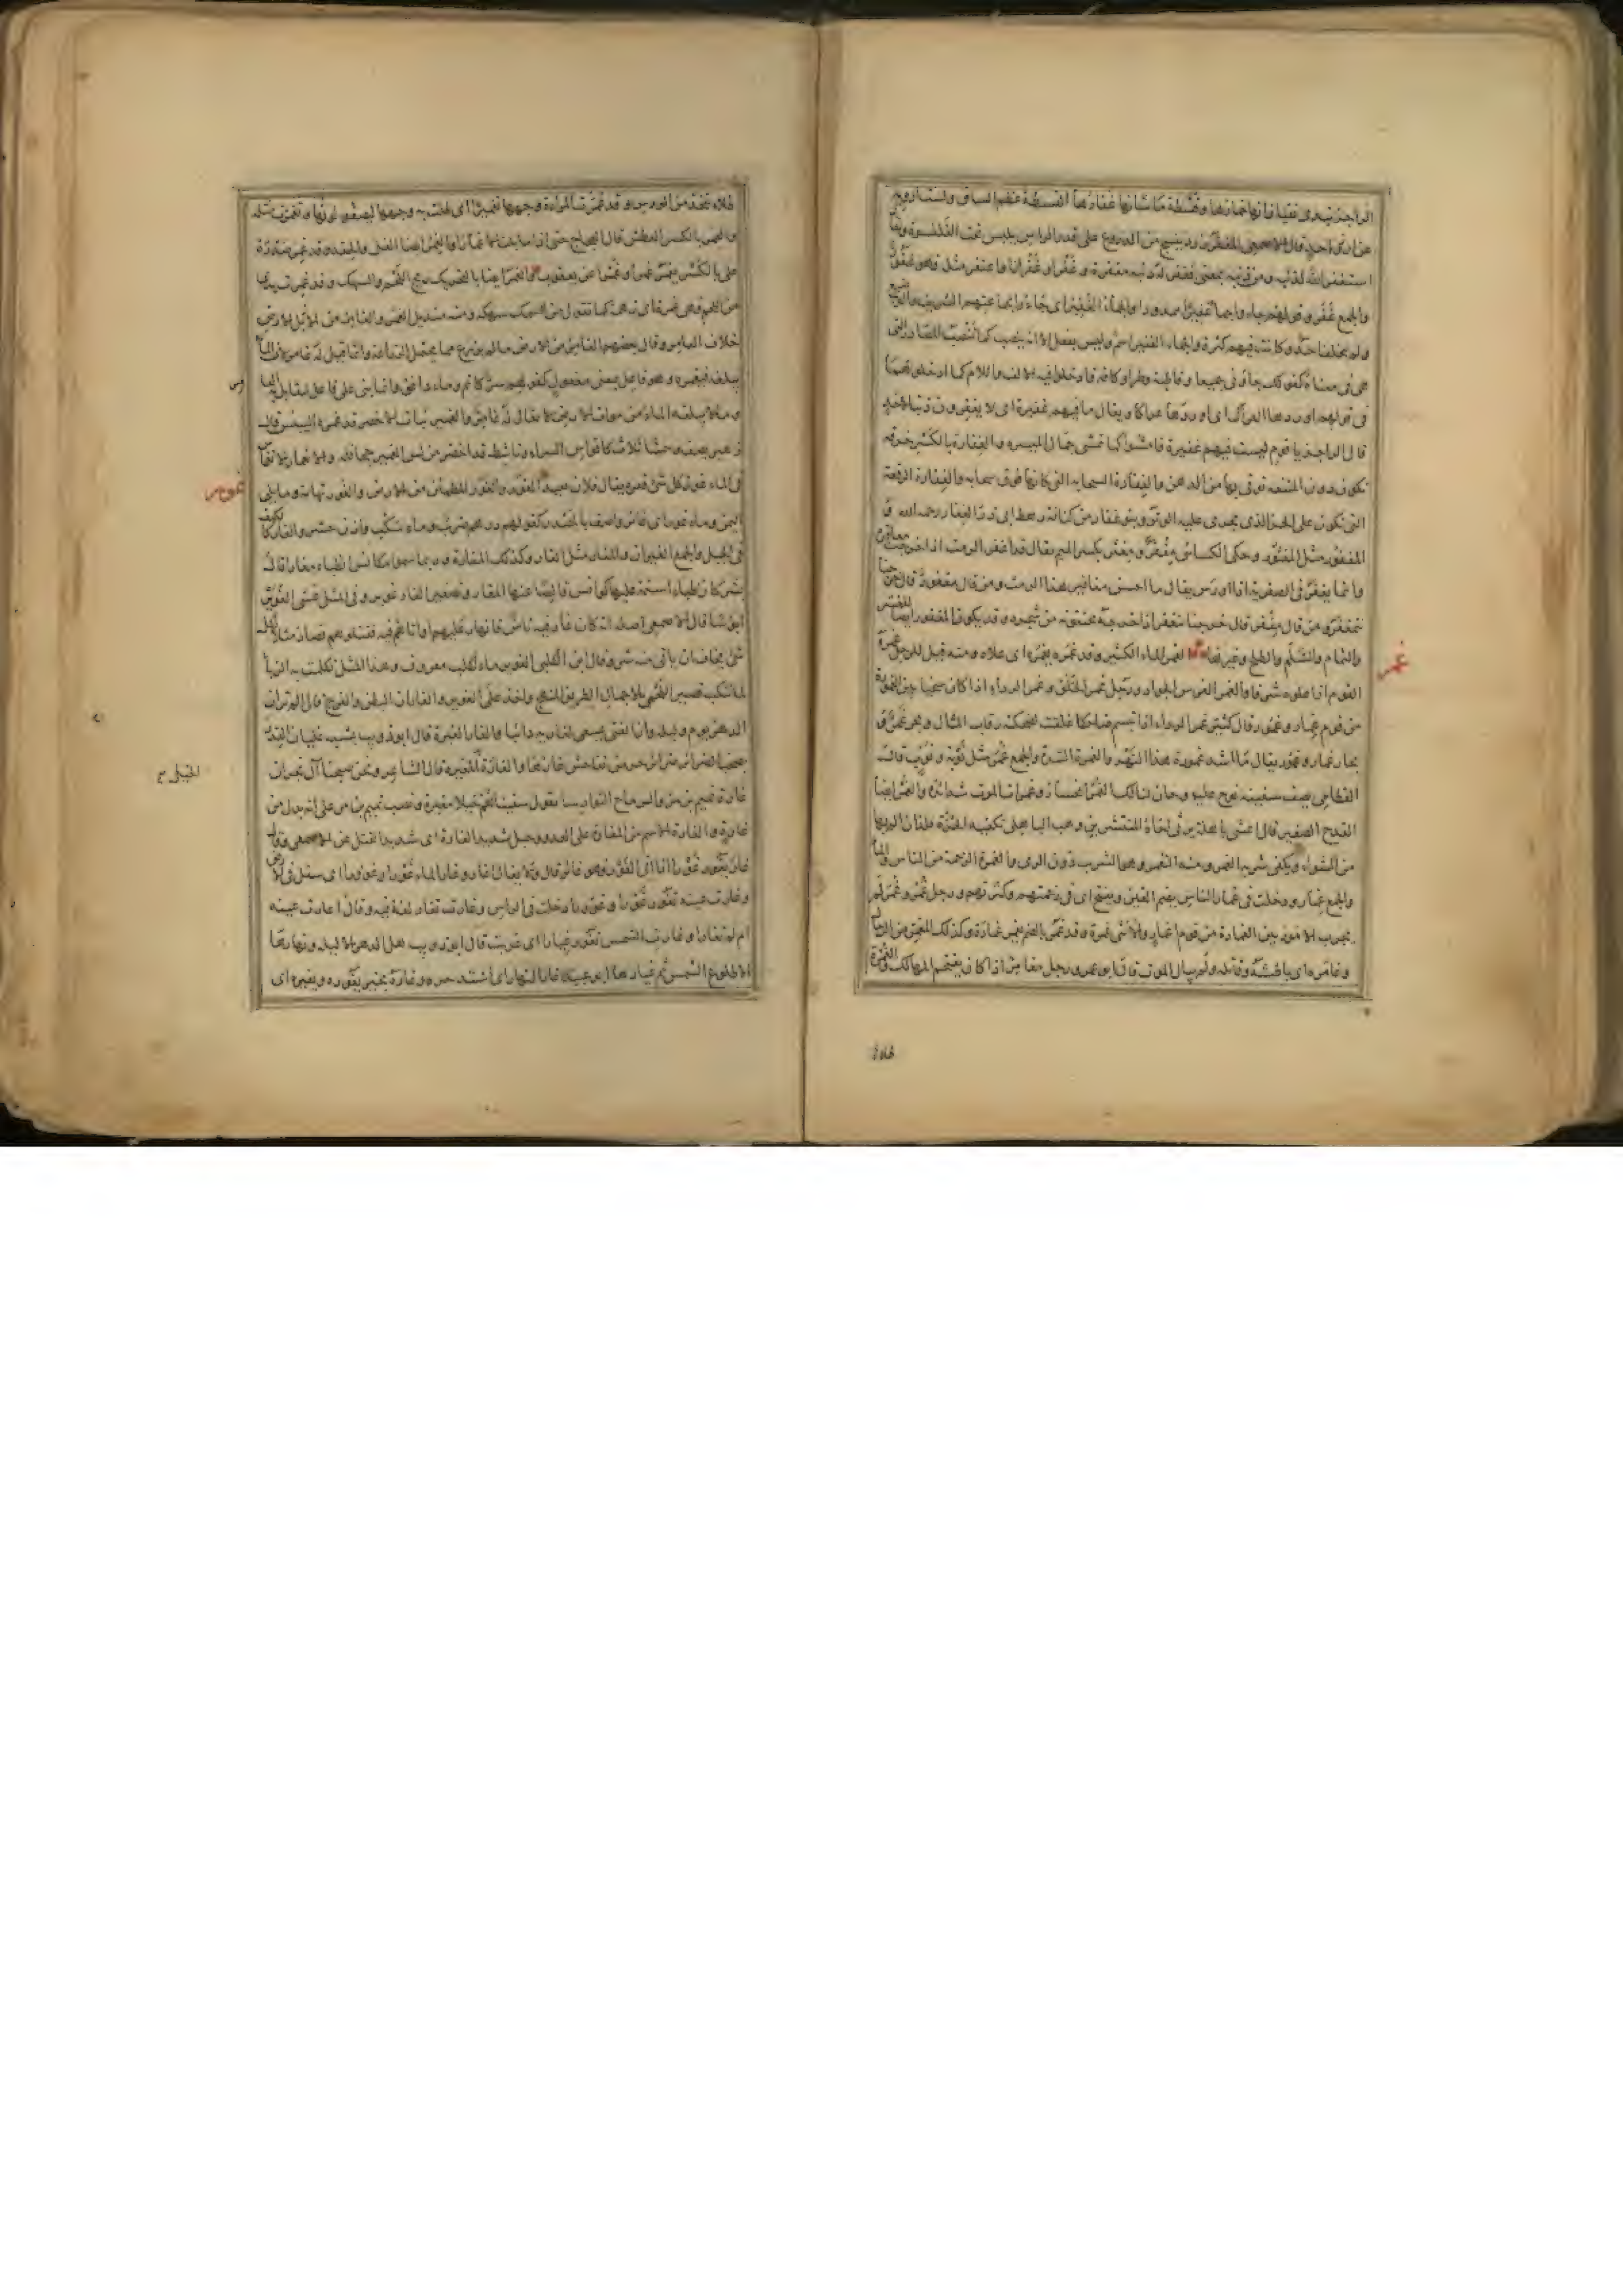 الراجز تبدى نقيا زانها خمارها وقسطة ما شانها غفارها القسطة عظم الساق ولست ارويه
عن احد قال الاصمعي المغفر زرد ينسج من الدروع على قدر الراس يلبس تحت القلنسوة ويقال
استغفر الله لذنبه ومن ذنبه بمعنى فغفر له ذنبه مغفرة وغفرا وغفرانا واغتفر مثله فهو غفور
والجمع غفر وقولهم جاؤا جماء غفيرا ممدودا والجماء الغفير اى جاءوا بجماعتهم الشريف والوضيع
ولم يتخلف احد وكانت فيهم كثرة والجماء الغفير اسم وليس بفعل الا انه ينصب كما تنصب المصادر التى
هى فى معناه كقولك جاؤنى جميعا وقاطبة وطرا وكافة وادخلوا فيه الالف واللام كما ادخلوهما
فى قولهم اوردها العراك اى اوردها عراكا ويقال ما فيهم غفيرة اى لا يغفرون ذنبا لاحد
قال الراجز يا قوم ليست فيهم غفيرة فامشوا كما تمشى جمال الحيرة والغفارة بالكسر خرقة
تكون دون المقنعة توقى بها من الدهن والغفارة السحابة التى كانها فوق سحابة والغفارة الرقعة
التى تكون على الحز الذى يجرى عليه الوتر وبنو غفار من كنانة رهط ابى ذر الغفارى رحمه الله و
المغفور مثل المغثور وحكى الكسائى مغفر ومغثر بكسر الميم يقال قد اغفر الرمث اذا خرجت مغافيره
وانما يغفر فى الصفرية اذا اورس يقال ما احسن مغافير هذا الرمث ومن قال مغفور قال خرجنا
نتمغفر ومن قال مغفر قال خرجنا نتغفر اذا خرج يجتنيه من شجره وقد يكون المغفور ايضا للعشر
والثمام والسلم والطلح وغير ذلك الغمر الماء الكثير وقد غمره يغمره اى علاه ومنه قيل للرجل غمره
القوم اذا علوه شرفا والغمر الفرس الجواد ورجل غمر الخلق وغمر الرداء اذا كان سخيا بين الغمورة
من قوم غمار وغمور قال كثير غمر الرداء اذا تبسم ضاحكا غلقت لضحكته رقاب المال وبحر غمر و
بحار غمار وغمور يقال ما اشد غمورة هذا النهر والغمرة الشدة والجمع غمر مثل نوبة ونوب قال
القطامى يصف سفينة نوح عليه وحان لتالك الغمر انحسار وغمرات الموت شدائده والغمر ايضا
القدح الصغير قال اعشى باهلة يرثى اخاه المنتشر بن وهب الباهلى تكفيه حزة فلذان الم بها
من الشواء ويكفى شربه الغمر ومنه التغمر وهو الشرب دون الرى والغمرة الزحمة من الناس والماء
والجمع غمار ودخلت فى غمار الناس بضم الغين ويفتح اى فى زحمتهم وكثرتهم ورجل غمر وغمر لم
يجرب الامور بين الغمارة من قوم اغمار والانثى غمرة وقد غمر بالضم يغمر غمارة وكذلك المغمر من الرجال
وغامره اى باطشه وقاتله ولم يبال الموت قال ابو عمرو رجل مغامر اذا كان يقتحم المهالك والغمرة
غمر
طلاء
طلاء يتخذ من الورس وقد غمرت المراءة وجهها تغميرا اى طلت به وجهها ليصفو لونها وتغمرت مثله
والغمر بالكسر العطش قال العجاج حتى اذا ما بلت الاغمارا والغمر ايضا الغل والحقد وقد غمر صدره
على بالكسر يغمر غمرا وغمرا عن يعقوب والغمر ايضا بالتحريك ريح اللحم والسهك وقد غمرت يدى
من اللحم فهى غمرة اى زهمة كما تقول من السمك سهكة ومنه منديل الغمر والغامر من الارض
خلاف العامر وقال بعضهم الغامر من الارض ما لم يزرع مما يحتمل الزراعة وانما قيل له غامر لان الماء
يبلغه فيغمره وهو فاعل بمعنى مفعول كقولهم سر كاتم وماء دافق وانما بنى على فاعل ليقابل به العامر
وما لا يبلغه الماء من موات الارض لا يقال له غامر والغمير نبات الاخضر قد غمره اليبيس قال
زهير يصف وحشا ثلاث كاقواس السراء وناشط قد اخضر من لس الغمير جحافله والانغمار الانغماس
فى الماء غور كل شئ قعره يقال فلان بعيد الغور والغور المطمئن من الارض والغور تهامة وما يلى
اليمن وماء غور اى غائر وصف بالمصدر كقولهم درهم ضرب وماء سكب واذن حشر والغار كالكهف
فى الجبل والجمع الغيران والمغار مثل الغار وكذلك المغارة وربما سموا مكانس الظباء مغارا قال
بشر كان ظباء اسنمة عليها كوانس قالصا عنها المغار وتصغير الغار غوير وفى المثل عسى الغوير
ابؤسا قال الاصمعى اصله انه كان غار فيه ناس فانهار عليهم او اتاهم فيه فقتلوهم فصار مثلا لكل
شئ يخاف ان ياتى منه شر وقال ابن الكلبى الغوير ماء لكلب معروف وهذا المثل تكلمت به الزباء
لما تنكب قصير اللخمى بالاجمال الطريق المنهج واخذ على الغوير والغاران البطن والفرج قال الم تر ان
الدهر يوم وليلة وان الفتى يسعى لغاريه دائبا والغار الغيرة قال ابو ذويب يشبه غليان القدر
بصخب الضرائر ضرائر حرمى تفاحش غارها والغارة الخيل المغيرة قال الشاعر ونحن صبحنا آل نجران
غارة تميم بن مر والرماح النوادسا يقول سقينا لهم خيلا مغيرة ونصب تميم بن مر على انه بدل من
غارة والغارة الاسم من الاغارة على العدو وحبل شديد الغارة اى شديد الفتل عن الاصمعى وقال
غار يغور غورا اذا اتى الغور فهو غائر قال ولا يقال اغار وغار الماء غورا وغوورا اى سفل فى الارض
وغارت عينه تغور غورا وغوورا دخلت فى الراس وغارت تغار لغة فيه وقال اغارت عينه
ام لم تغارا وغارت الشمس تغور غيارا اى غربت قال ابو ذويب هل الدهر الا ليلة ونهارها
الا طلوع الشمس ثم غيارها ابو عبيد غار النهار اى اشتد حره وغاره بخير يغوره ويغيره اى
غور
الخيل صح